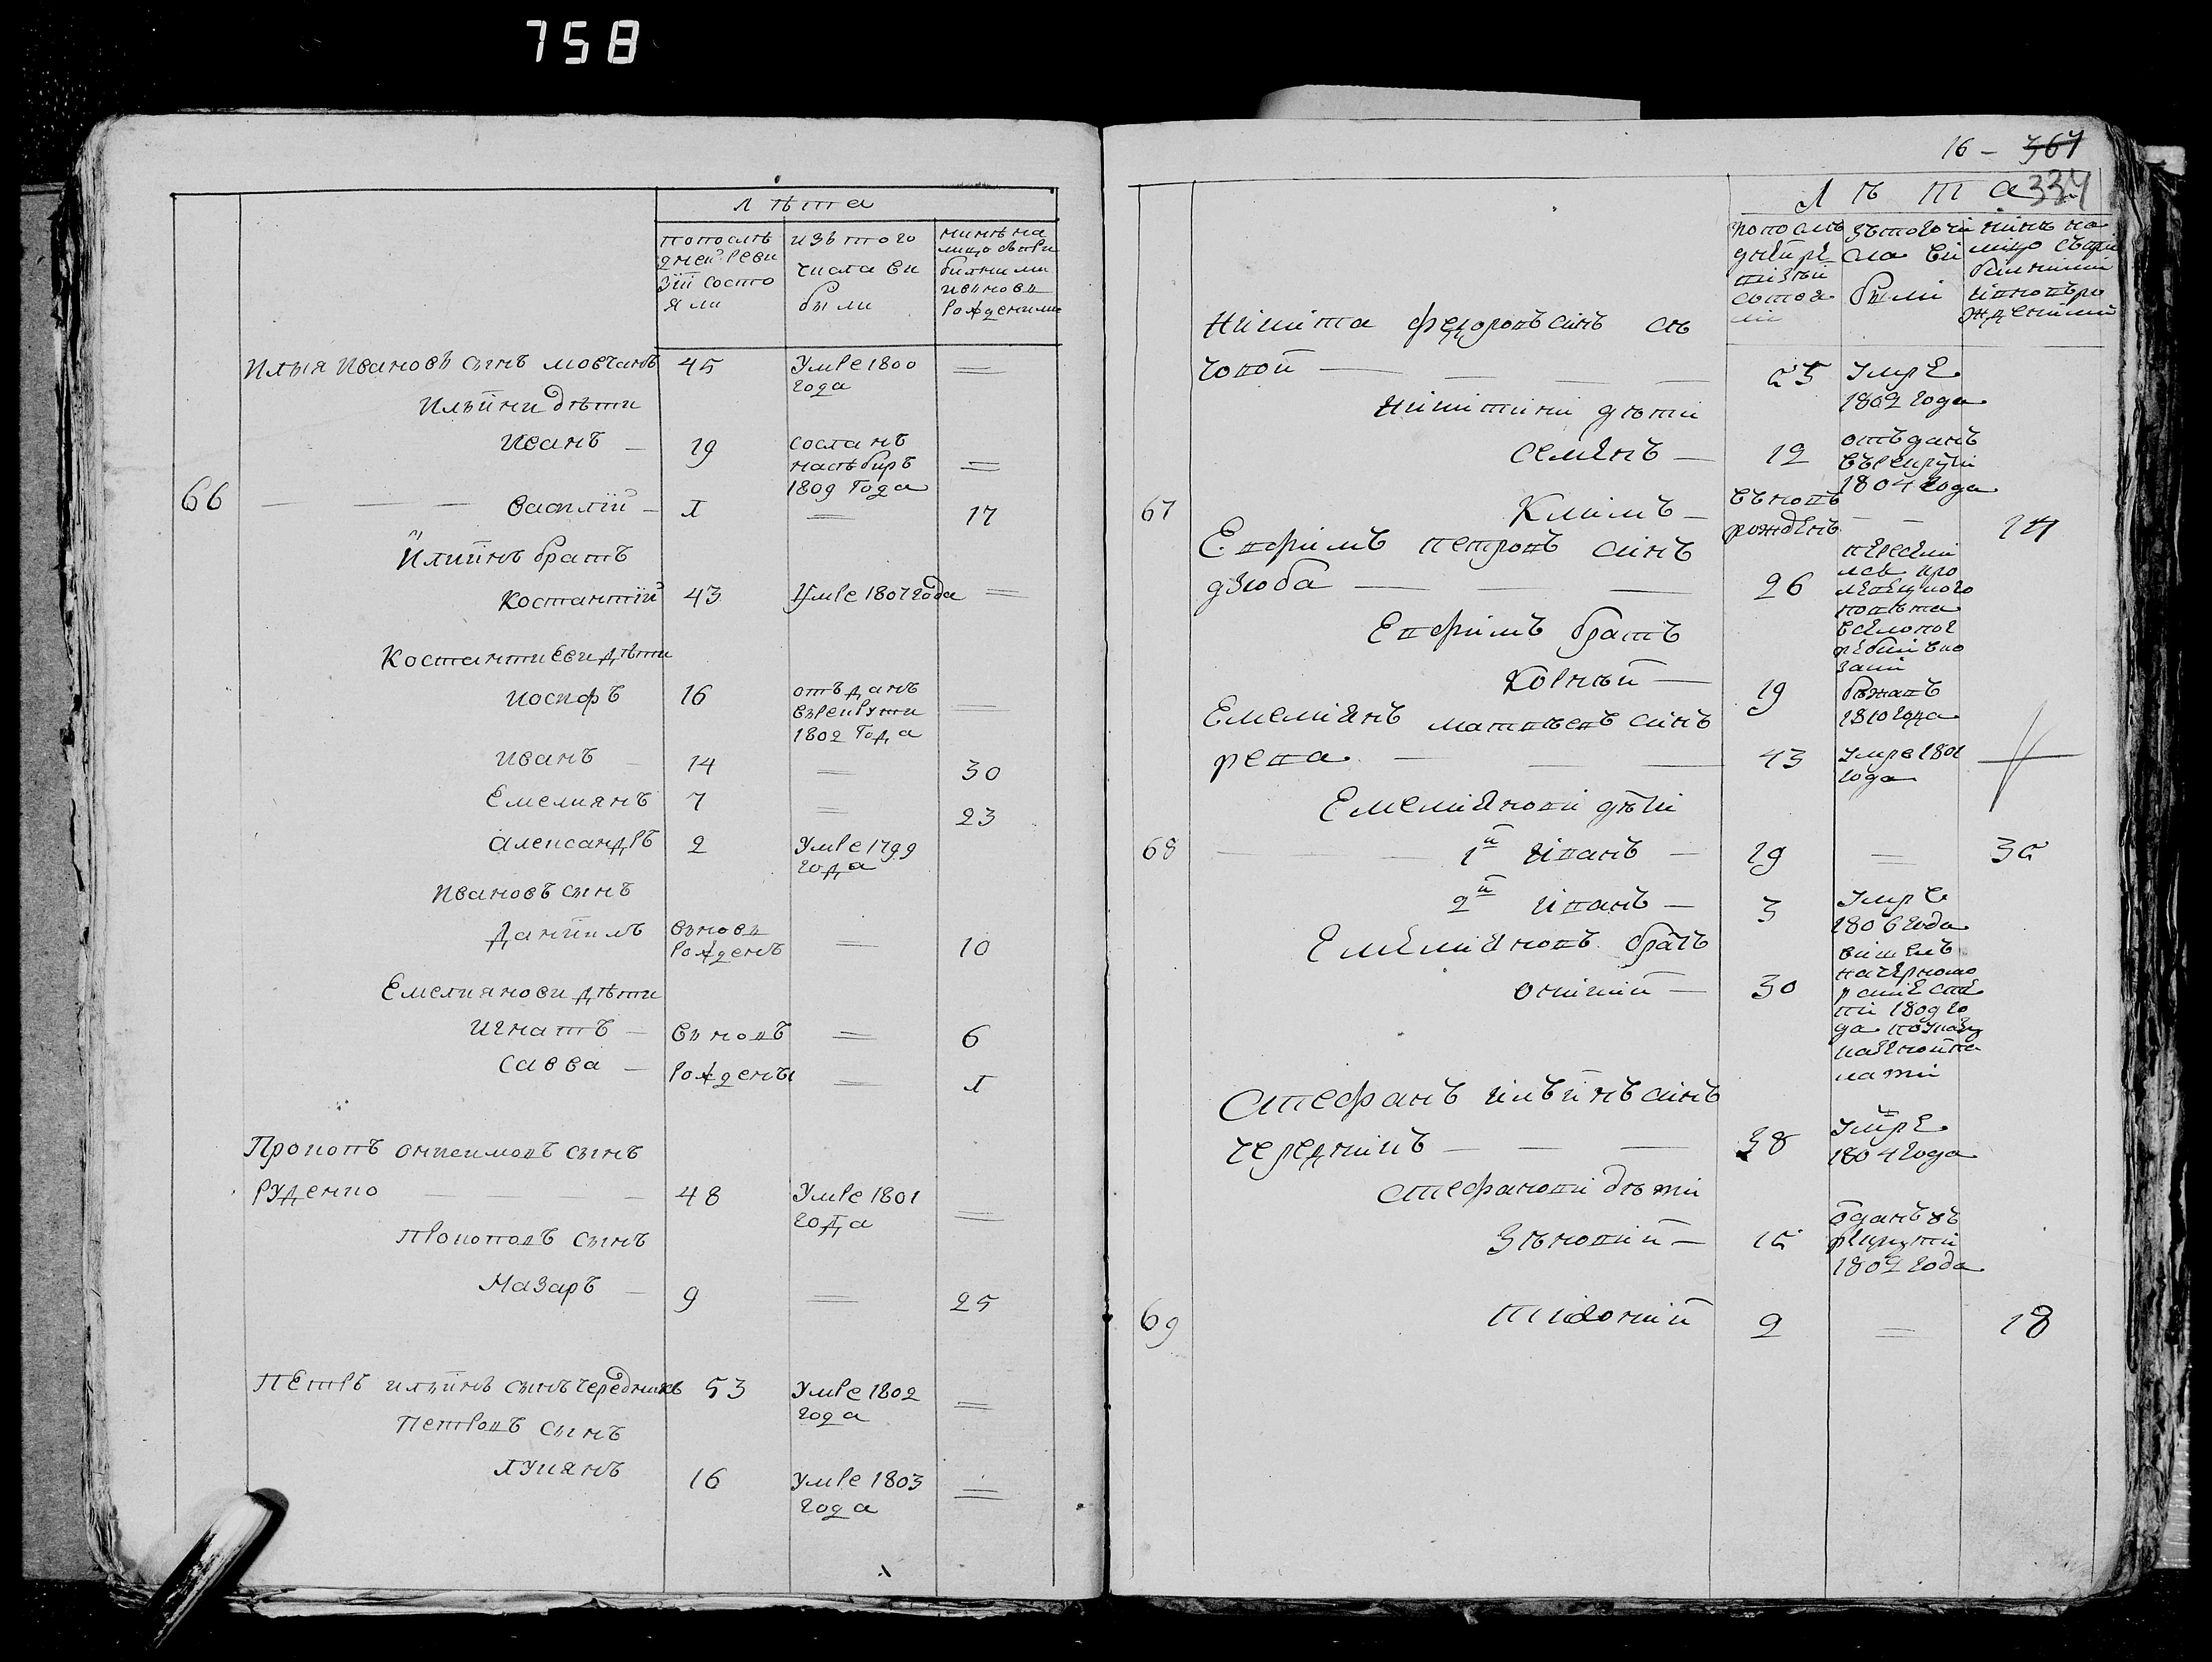 758
Лѣта
попослѣ
дней реви
зіи состо
яли
изъ того
числа ви
были
нинѣ на
лицо съ при
былими
ивновъ
рожденими
Илья Ивановъ сынъ мовчанъ 45 Умре 1800
года
Ильини дѣти
Иванъ — 19 сосланъ
1809 года
66 — — — василій — 1 = 17
Илиинъ братъ
Костантій 43 Умре 1807 года =
Костантиеви дѣти
иосифъ 16 отъданъ
врекрути
1802 года
иванъ — 14 = 30
Емелиянъ 7 = 23
александръ 2 Умре 1799
года
ивановъ сынъ
даніилъ вновь
рожденъ = 10
Емелиянови дѣти
игнатъ — вновъ = 6
савва — рожденъ = 1
Прокопъ онисимовъ сынъ
руденко — — — 48 Умре 1801
года =
прокоповъ сынъ
Назаръ — 9 = 25
петръ ильинъ сынъ чередникъ 53 Умре 1802
года =
петровъ сынъ
лукянъ 16 Умре 1803
года =
16 — 367
334
Лѣта
попослѣ
дней ре
визіи
состоя
ли
зътого чи
сла ви
были
нинѣ на
лицо съ при
билими
ивновъ ро
жденими
никита федоровъ синъ сл
човой — — — — 25 умре
1802 года
никитини дѣти
семенъ — 12 отъданъ
врекрути
1804 года
67 Климъ — вновъ
рожденъ — — 14
Евфимъ петровъ синъ
дзюба — — — 26 пересели
лся кро
повѣта
Евфимъ братъ
Корнѣй — 19 бѣжавъ
1810 года
Емелиянъ матвѣевъ синъ
репа — — — 43 умре 1801
года
Емелиянови дѣти
68 — — 1й иванъ — 19 = 35
2й иванъ — 3 умре
1806 года
Емелияновъ братъ
30 вишелъ
на черномо
1809 го
да по указу
Стефанъ ильинъ синъ
чередникъ — — — 38 умре
1804 года
стефанови дѣти
Зѣновий — 15 оданъ въ
рекрути
1802 года
69 2 = 18